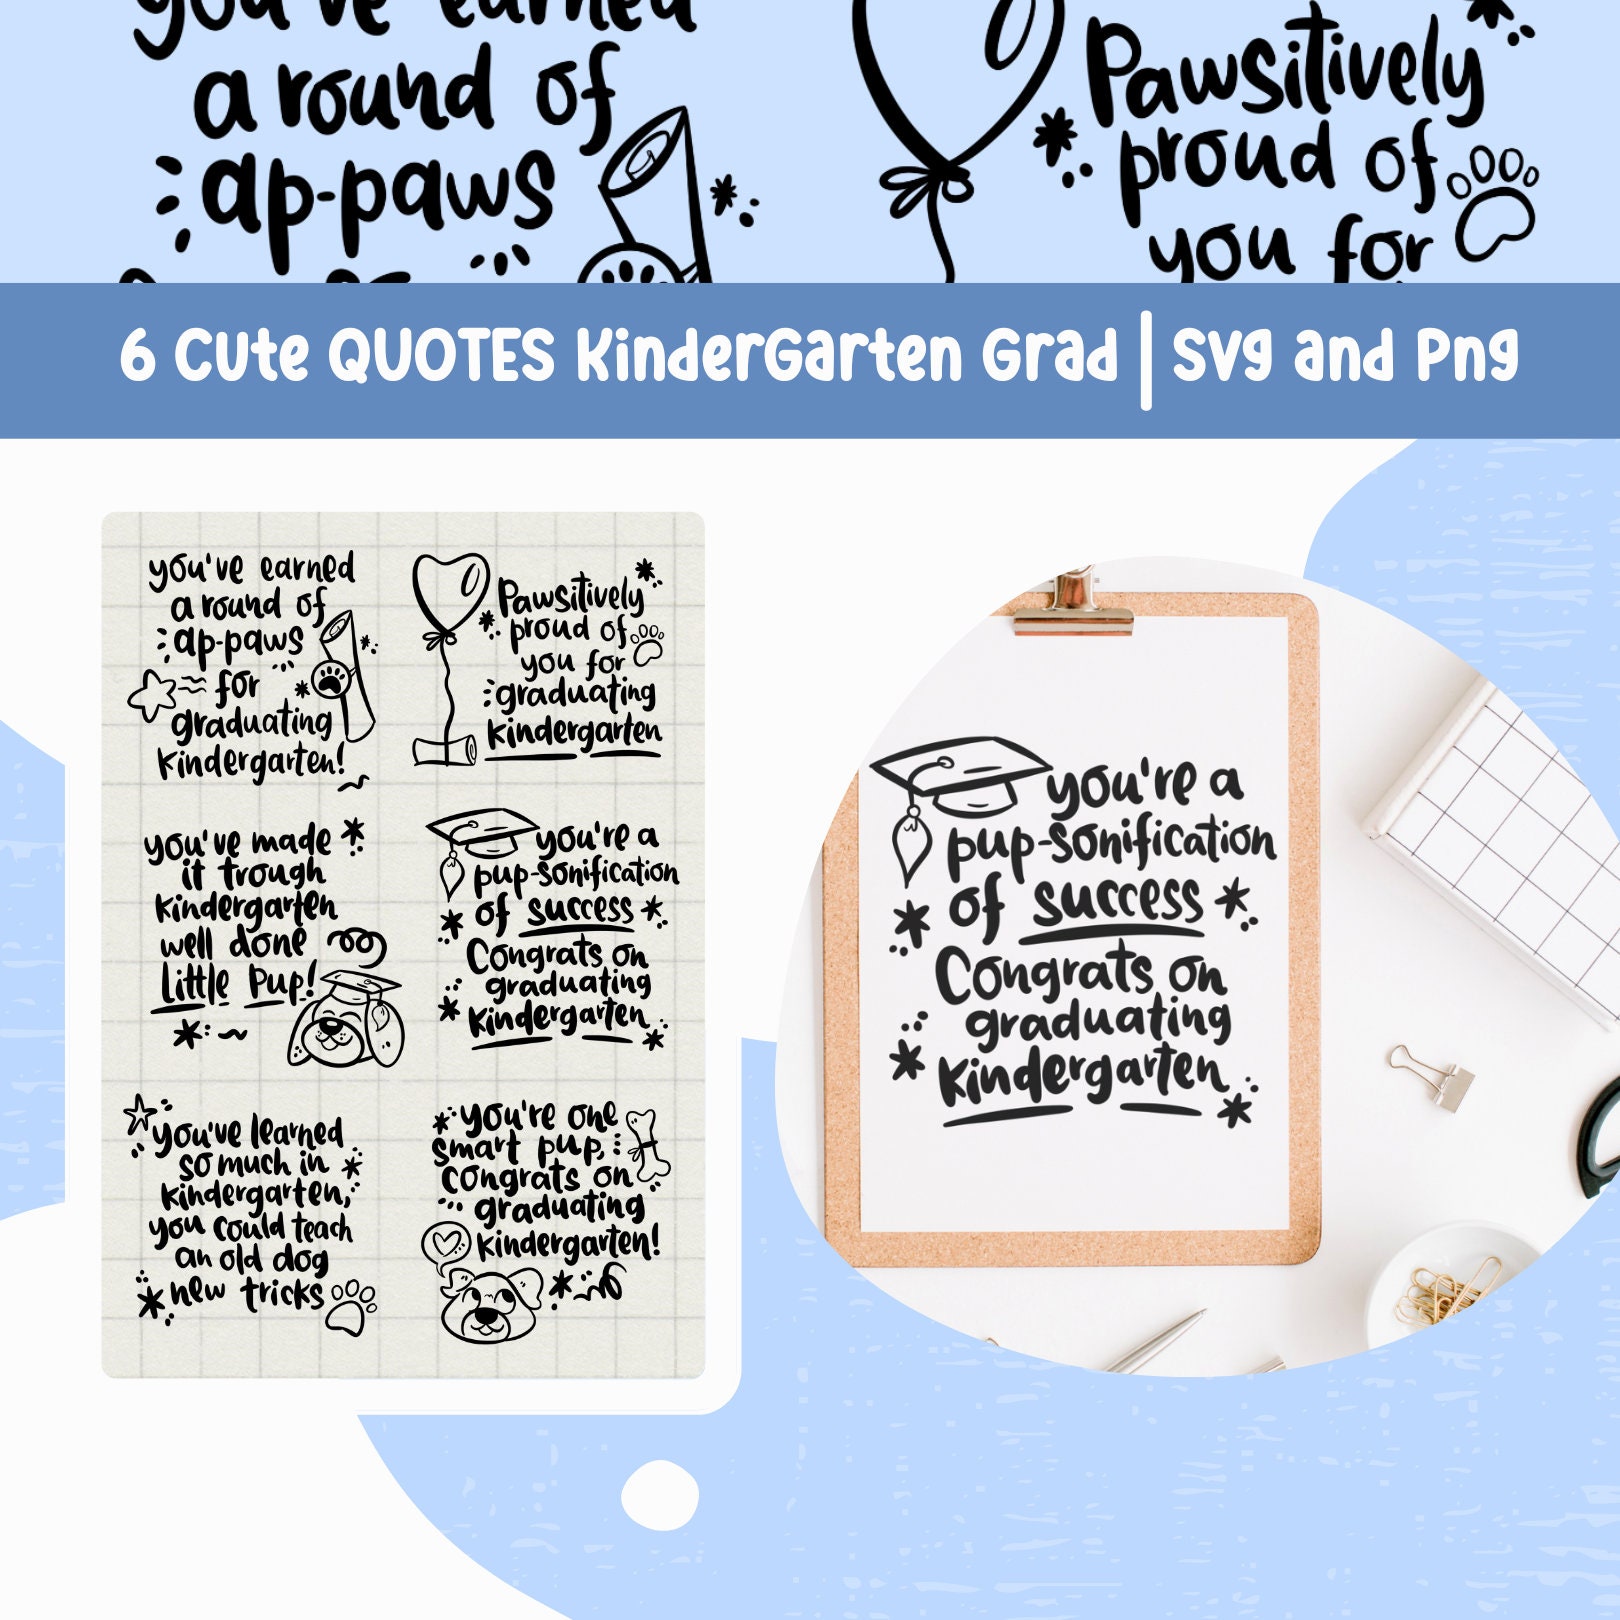 you've earned
a round of
ap-paws
Pawsitively
proud of
you for
6 Cute QUOTES KinderGarten Grad | Svg and Png
you've earned
a round of
ap-paws
for
graduating
kindergarten!
Pawsitively
proud of
you for
graduating
kindergarten
you've made
it trough
kindergarten
well done
Little Pup!
you're a
pup-sonification
of success
Congrats on
graduating
kindergarten
you've learned
so much in
kindergarten,
you could teach
an old dog
new tricks
you're one
smart pup,
congrats on
graduating
kindergarten!
you're a
pup-sonification
of success
Congrats on
graduating
kindergarten